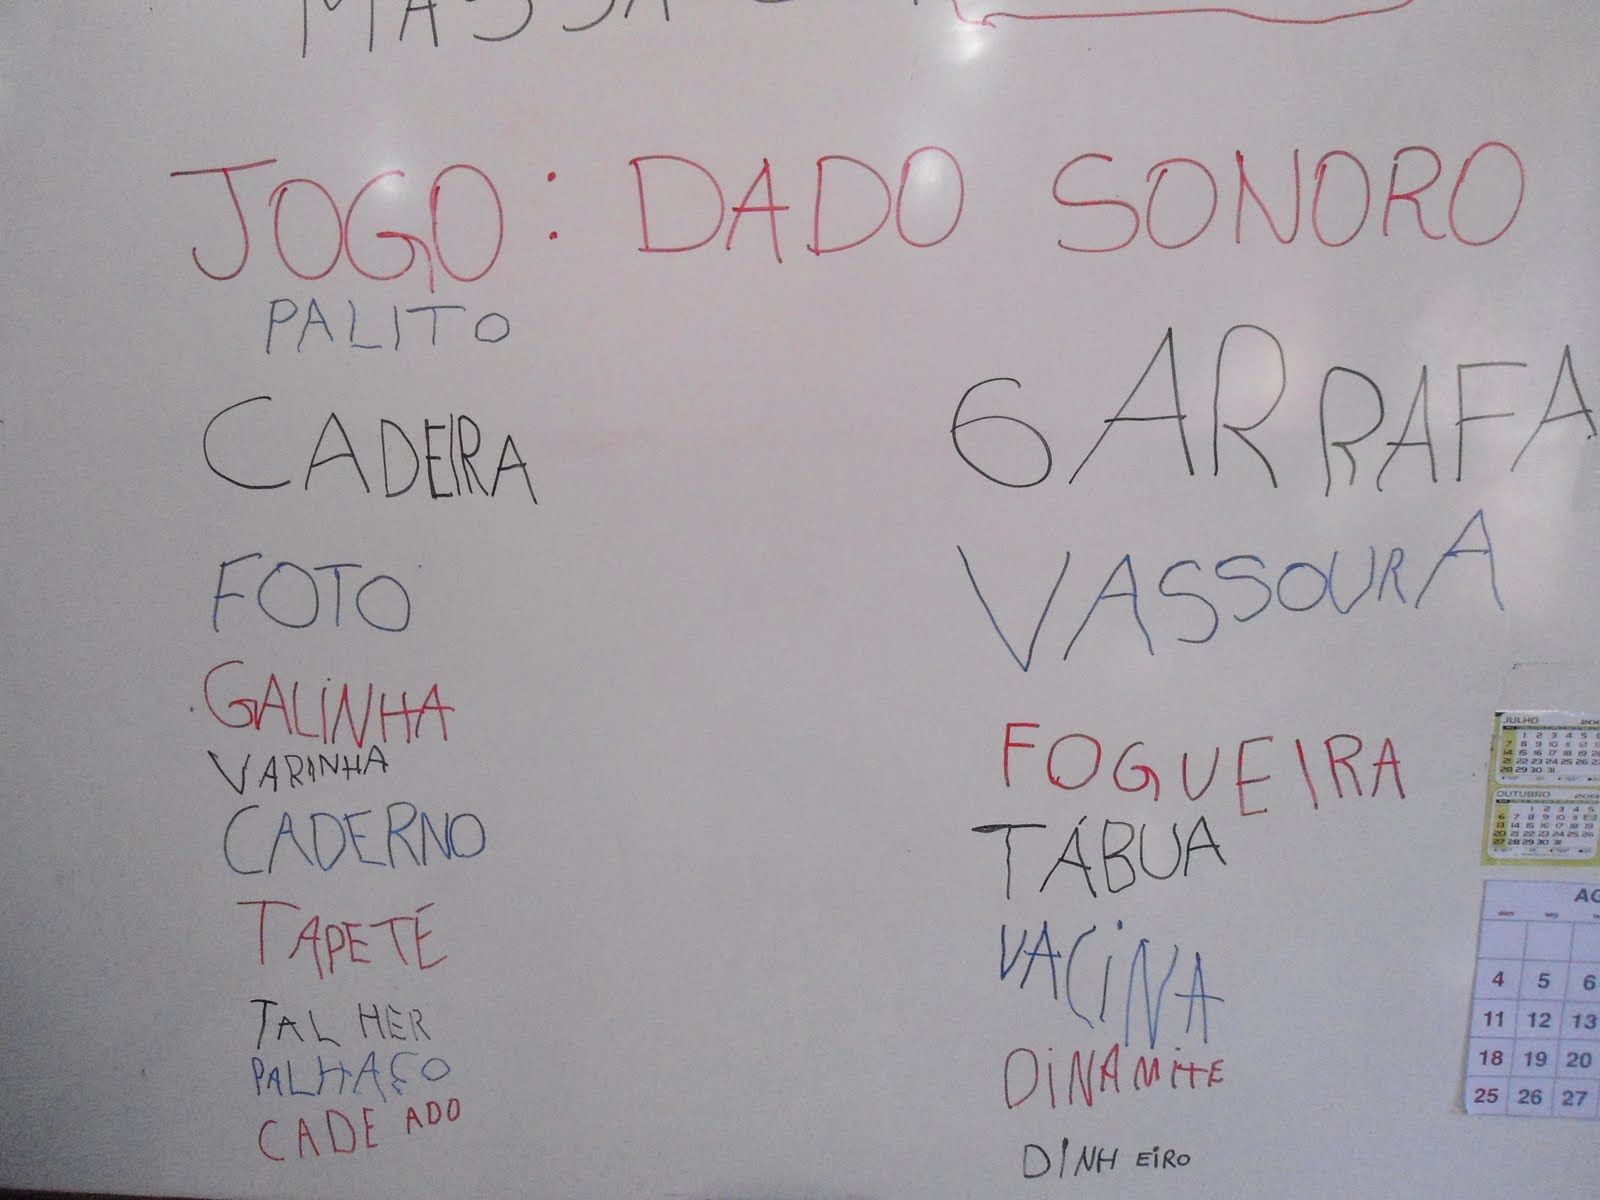 MASSA
JOGO: DADO SONORO
PALITO
CADEIRA
FOTO
GALINHA
VARINHA
CADERNO
TAPETE
TALHER
PALHAÇO
CADEADO
GARRAFA
VASSOURA
FOGUEIRA
TÁBUA
VACINA
DINAMITE
DINHEIRO
JULHO
1 2 3 4 5
7 8 9 10 11 12
14 15 16 17 18 19
21 22 23 24 25 26
28 29 30 31
OUTUBRO
1 2 3 4 5
6 7 8 9 10 11
13 14 15 16 17 18
20 21 22 23 24 25
27 28 29 30 31
AG
dom seg
4 5 6
11 12 13
18 19 20
25 26 27